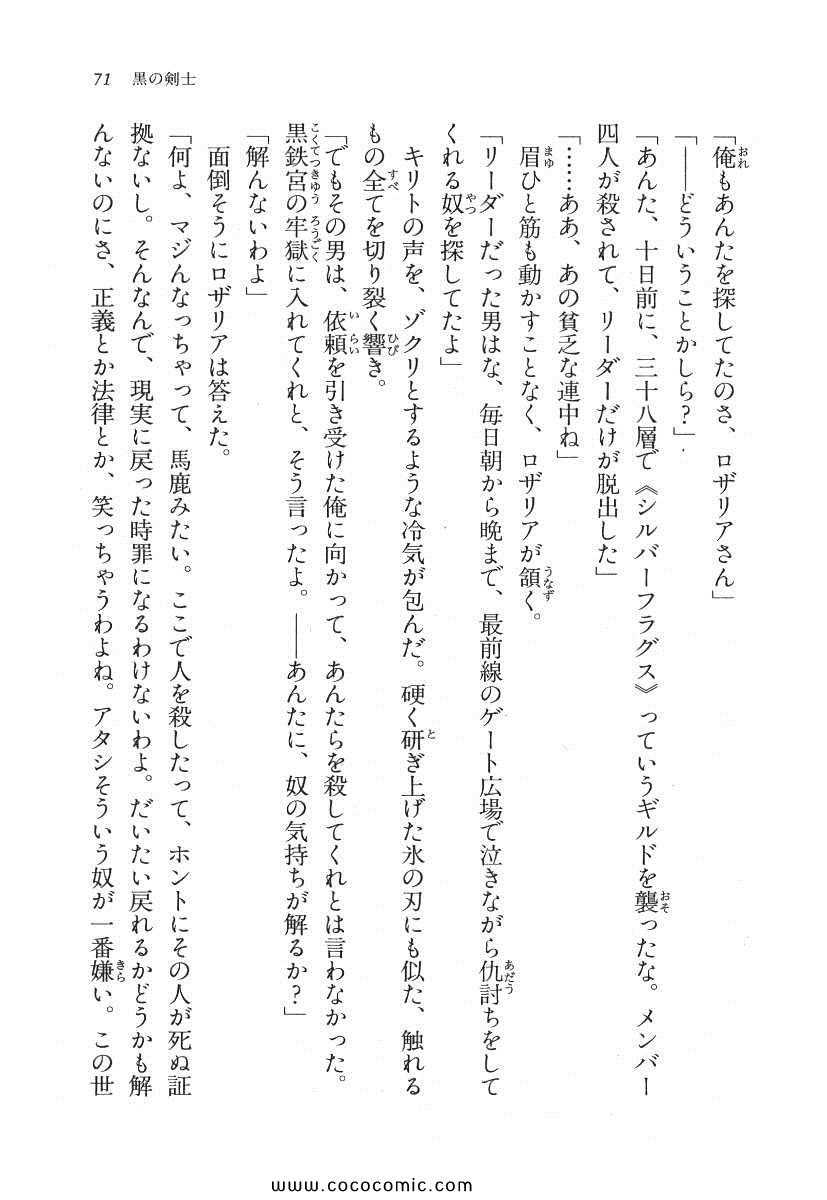 71 黒の剣士
「俺もあんたを探してたのさ、ロザリアさん」
「――どういうことかしら？」
「あんた、十日前に、三十八層で《シルバーフラグス》っていうギルドを襲ったな。メンバー
四人が殺されて、リーダーだけが脱出した」
「……ああ、あの貧乏な連中ね」
眉ひと筋も動かすことなく、ロザリアが頷く。
「リーダーだった男はな、毎日朝から晩まで、最前線のゲート広場で泣きながら仇討ちをして
くれる奴を探してたよ」
キリトの声を、ゾクリとするような冷気が包んだ。硬く研ぎ上げた氷の刃にも似た、触れる
もの全てを切り裂く響き。
「でもその男は、依頼を引き受けた俺に向かって、あんたらを殺してくれとは言わなかった。
黒鉄宮の牢獄に入れてくれと、そう言ったよ。――あんたに、奴の気持ちが解るか？」
「解んないわよ」
面倒そうにロザリアは答えた。
「何よ、マジんなっちゃって、馬鹿みたい。ここで人を殺したって、ホントにその人が死ぬ証
拠ないし。そんなんで、現実に戻った時罪になるわけないわよ。だいたい戻れるかどうかも解
んないのにさ、正義とか法律とか、笑っちゃうわよね。アタシそういう奴が一番嫌い。この世
www.cococomic.com